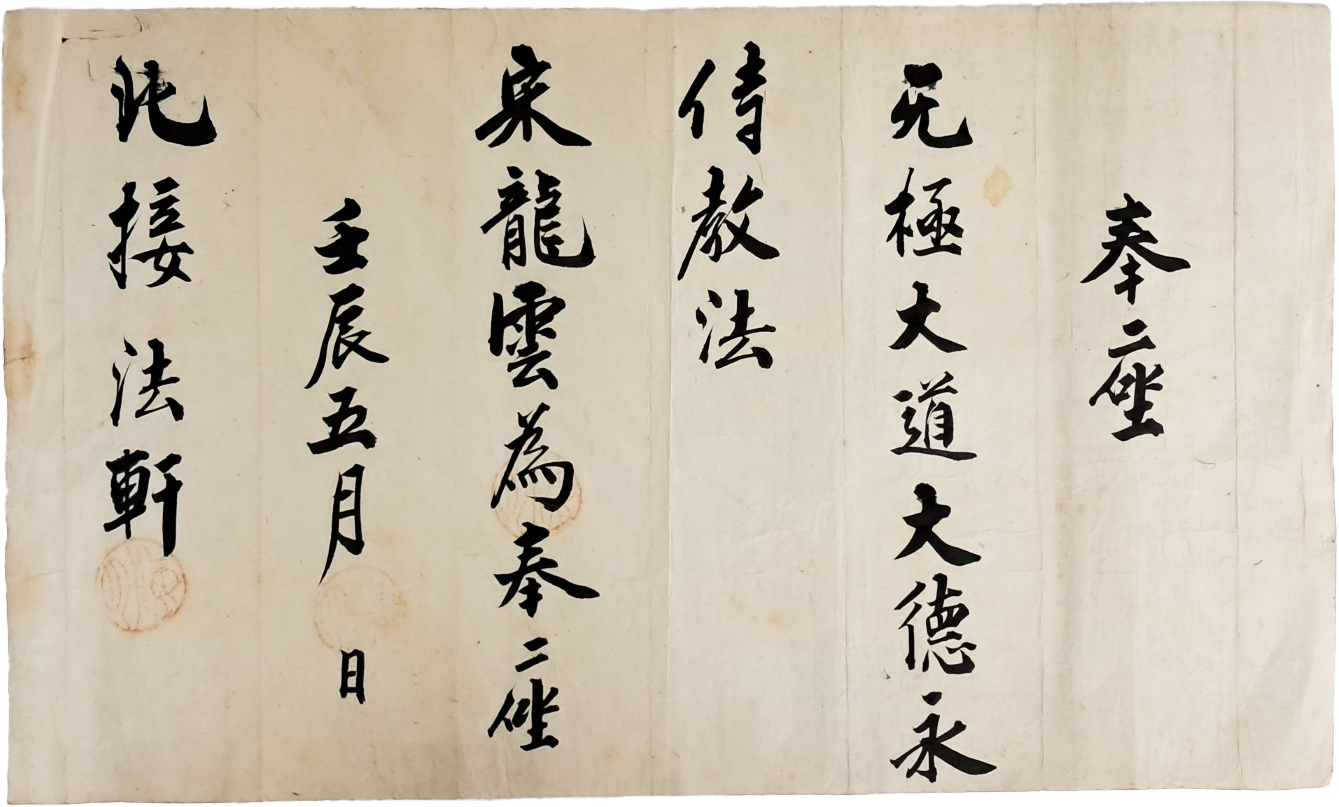 奉二侳
无極大道大德永
侍教法
宋龍雲為奉二侳
壬辰五月 日
北接法軒